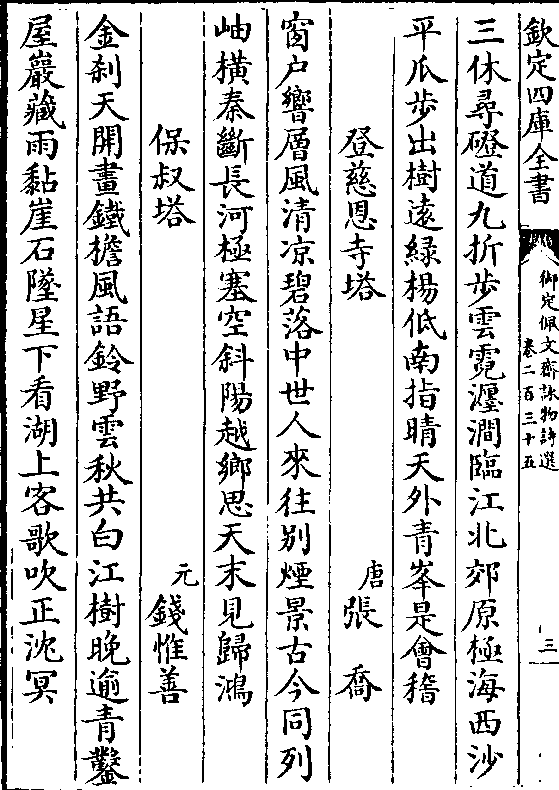 欽定四庫全書
御定佩文齋詠物詩選
卷二百三十五
三
三休尋磴道九折步雲霓瀍澗臨江北郊原極海西沙
平瓜步出樹遠緑楊低南指晴天外青峯是會稽
登慈恩寺塔 唐張喬
窗戸響層風清凉碧落中世人來往别煙景古今同列
岫横秦斷長河極塞空斜陽越鄉思天末見歸鴻
保叔塔 元錢惟善
金刹天開畫鐵檐風語鈴野雲秋共白江樹晚逾青鑿
屋巖藏雨黏崖石墜星下看湖上客歌吹正沈冥